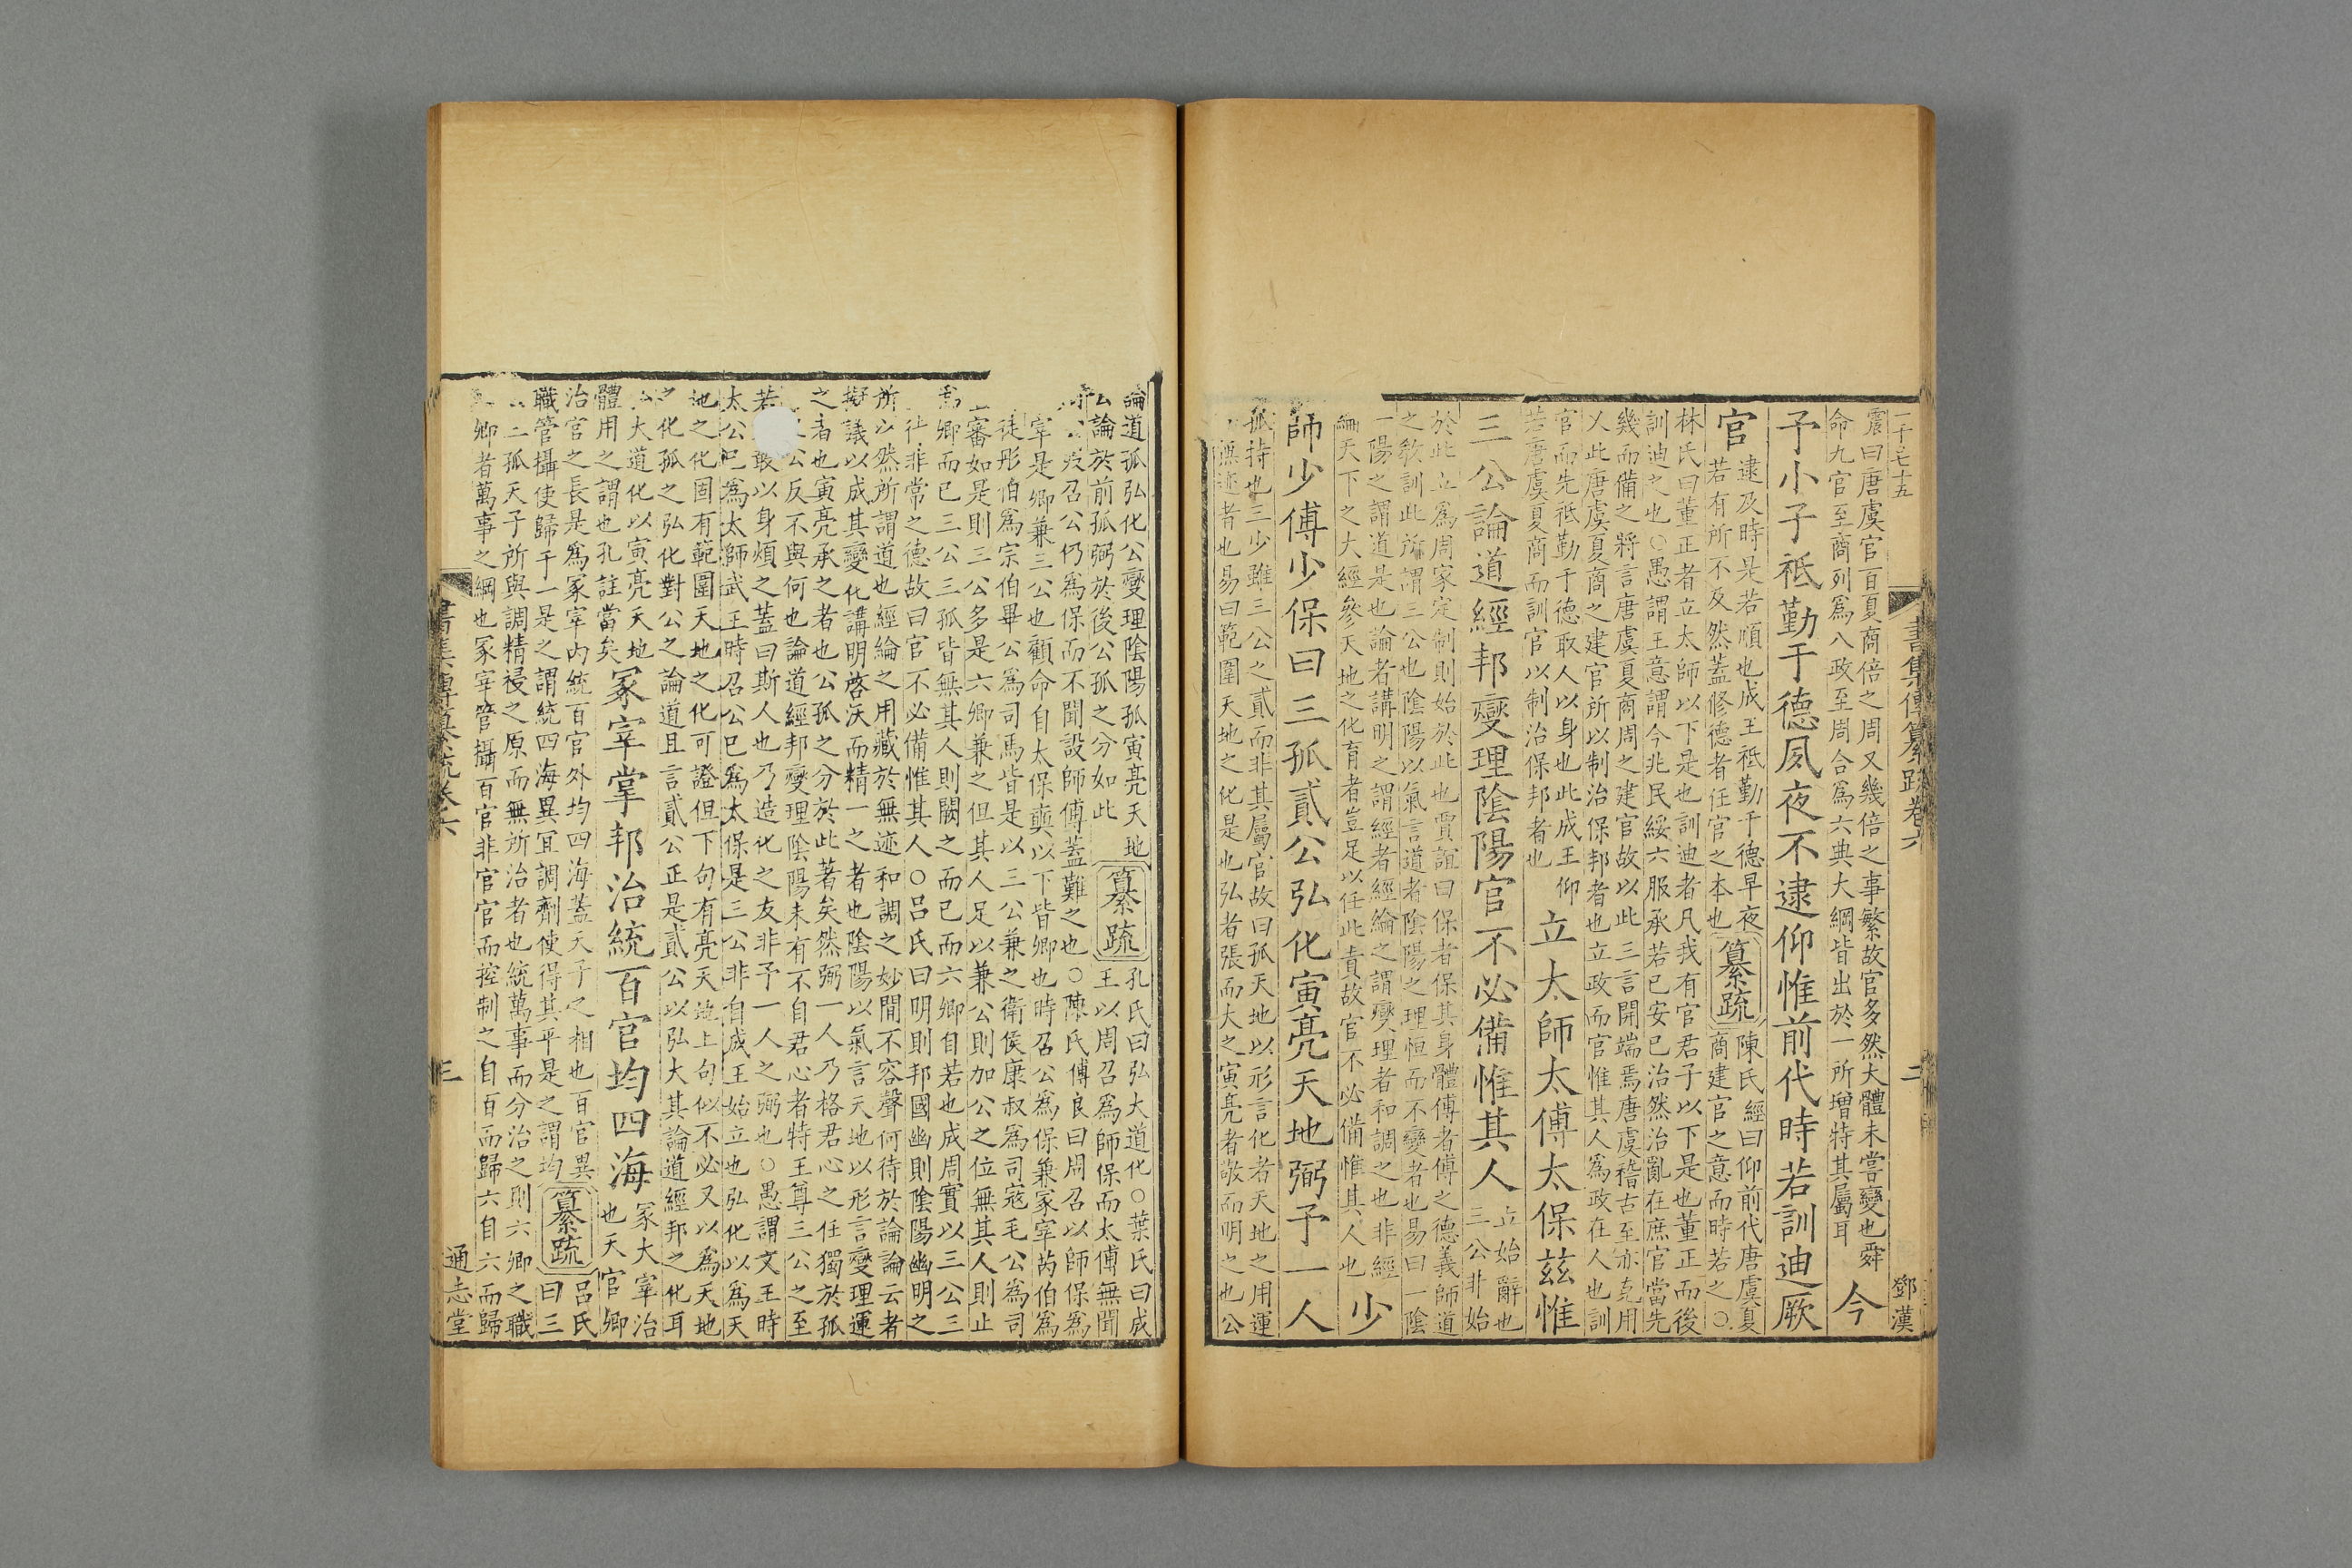 一千七十五
書集傳纂疏卷六
二
鄧漢
震曰唐虞官百夏商倍之周又幾倍之事繁故官多然大體未嘗變也舜
命九官至商列爲八政至周合爲六典大綱皆出於一所增特其屬耳
今
予小子祗勤于德夙夜不逮仰惟前代時若訓迪厥
官
逮及時是若順也成王祗勤于德早夜
若有所不及然蓋修德者任官之本也
纂疏
陳氏經曰仰前代唐虞夏
商建官之意而時若之○
林氏曰董正者立太師以下是也訓迪者凡我有官君子以下是也董正而後
訓迪之也○愚謂王意謂今兆民綏六服承若已安已治然治亂在庶官當先
幾而備之將言唐虞夏商周之建官故以此三言開端焉唐虞稽古至亦克用
乂此唐虞夏商之建官所以制治保邦者也立政而官惟其人爲政在人也訓
官而先祗勤于德取人以身也此成王仰
若唐虞夏商而訓官以制治保邦者也
立太師太傅太保茲惟
三公論道經邦燮理陰陽官不必備惟其人
立始辭也
三公非始
於此立爲周家定制則始於此也賈誼曰保者保其身體傅者傅之德義師道
之敎訓此所謂三公也陰陽以氣言道者陰陽之理恒而不變者也易曰一陰
一陽之謂道是也論者講明之謂經者經綸之謂燮理者和調之也非經
綸天下之大經參天地之化育者豈足以任此責故官不必備惟其人也
少
師少傅少保曰三孤貳公弘化寅亮天地弼予一人
孤特也三少雖三公之貳而非其屬官故曰孤天地以形言化者天地之用運
無迹者也易曰範圍天地之化是也弘者張而大之寅亮者敬而明之也公
論道孤弘化公燮理陰陽孤寅亮天地
公論於前孤弼於後公孤之分如此
纂疏
孔氏曰弘大道化○葉氏曰成
王以周召爲師保而太傅無聞
召公仍爲保而不聞設師傅蓋難之也○陳氏傅良曰周召以師保爲
宰是卿兼三公也顧命自太保奭以下皆卿也時召公爲保兼冢宰芮伯爲
徒彤伯爲宗伯畢公爲司馬皆是以三公兼之衛侯康叔爲司寇毛公爲司
審如是則三公多是六卿兼之但其人足以兼公則加公之位無其人則止
爲卿而已三公三孤皆無其人則闕之而已而六卿自若也成周實以三公三
非常之德故曰官不必備惟其人○呂氏曰明則邦國幽則陰陽幽明之
所以然所謂道也經綸之用藏於無迹和調之妙間不容聲何待於論論云者
擬議以成其變化講明啓沃而精一之者也陰陽以氣言天地以形言燮理運
之者也寅亮承之者也公孤之分於此著矣然弼一人乃格君心之任獨於孤
公反不與何也論道經邦燮理陰陽未有不自君心者特王尊三公之至
若敢以身煩之蓋曰斯人也乃造化之友非予一人之弼也○愚謂文王時
太公已爲太師武王時召公已爲太保是三公非自成王始立也弘化以爲天
地之化固有範圍天地之化可證但下句有亮天地上句似不必又以爲天地
之化孤之弘化對公之論道且言貳公正是貳公以弘大其論道經邦之化耳
大道化以寅亮天地
體用之謂也孔註當矣
冢宰掌邦治統百官均四海
冢大宰治
也天官卿
治官之長是爲冢宰內統百官外均四海蓋天子之相也百官異
職管攝使歸于一是之謂統四海異宜調劑使得其平是之謂均
纂疏
呂氏
曰三
三孤天子所與調精祲之原而無所治者也統萬事而分治之則六卿之職
卿者萬事之綱也冢宰管攝百官非官官而控制之自百而歸六自六而歸
書集傳纂疏卷六
三
通志堂